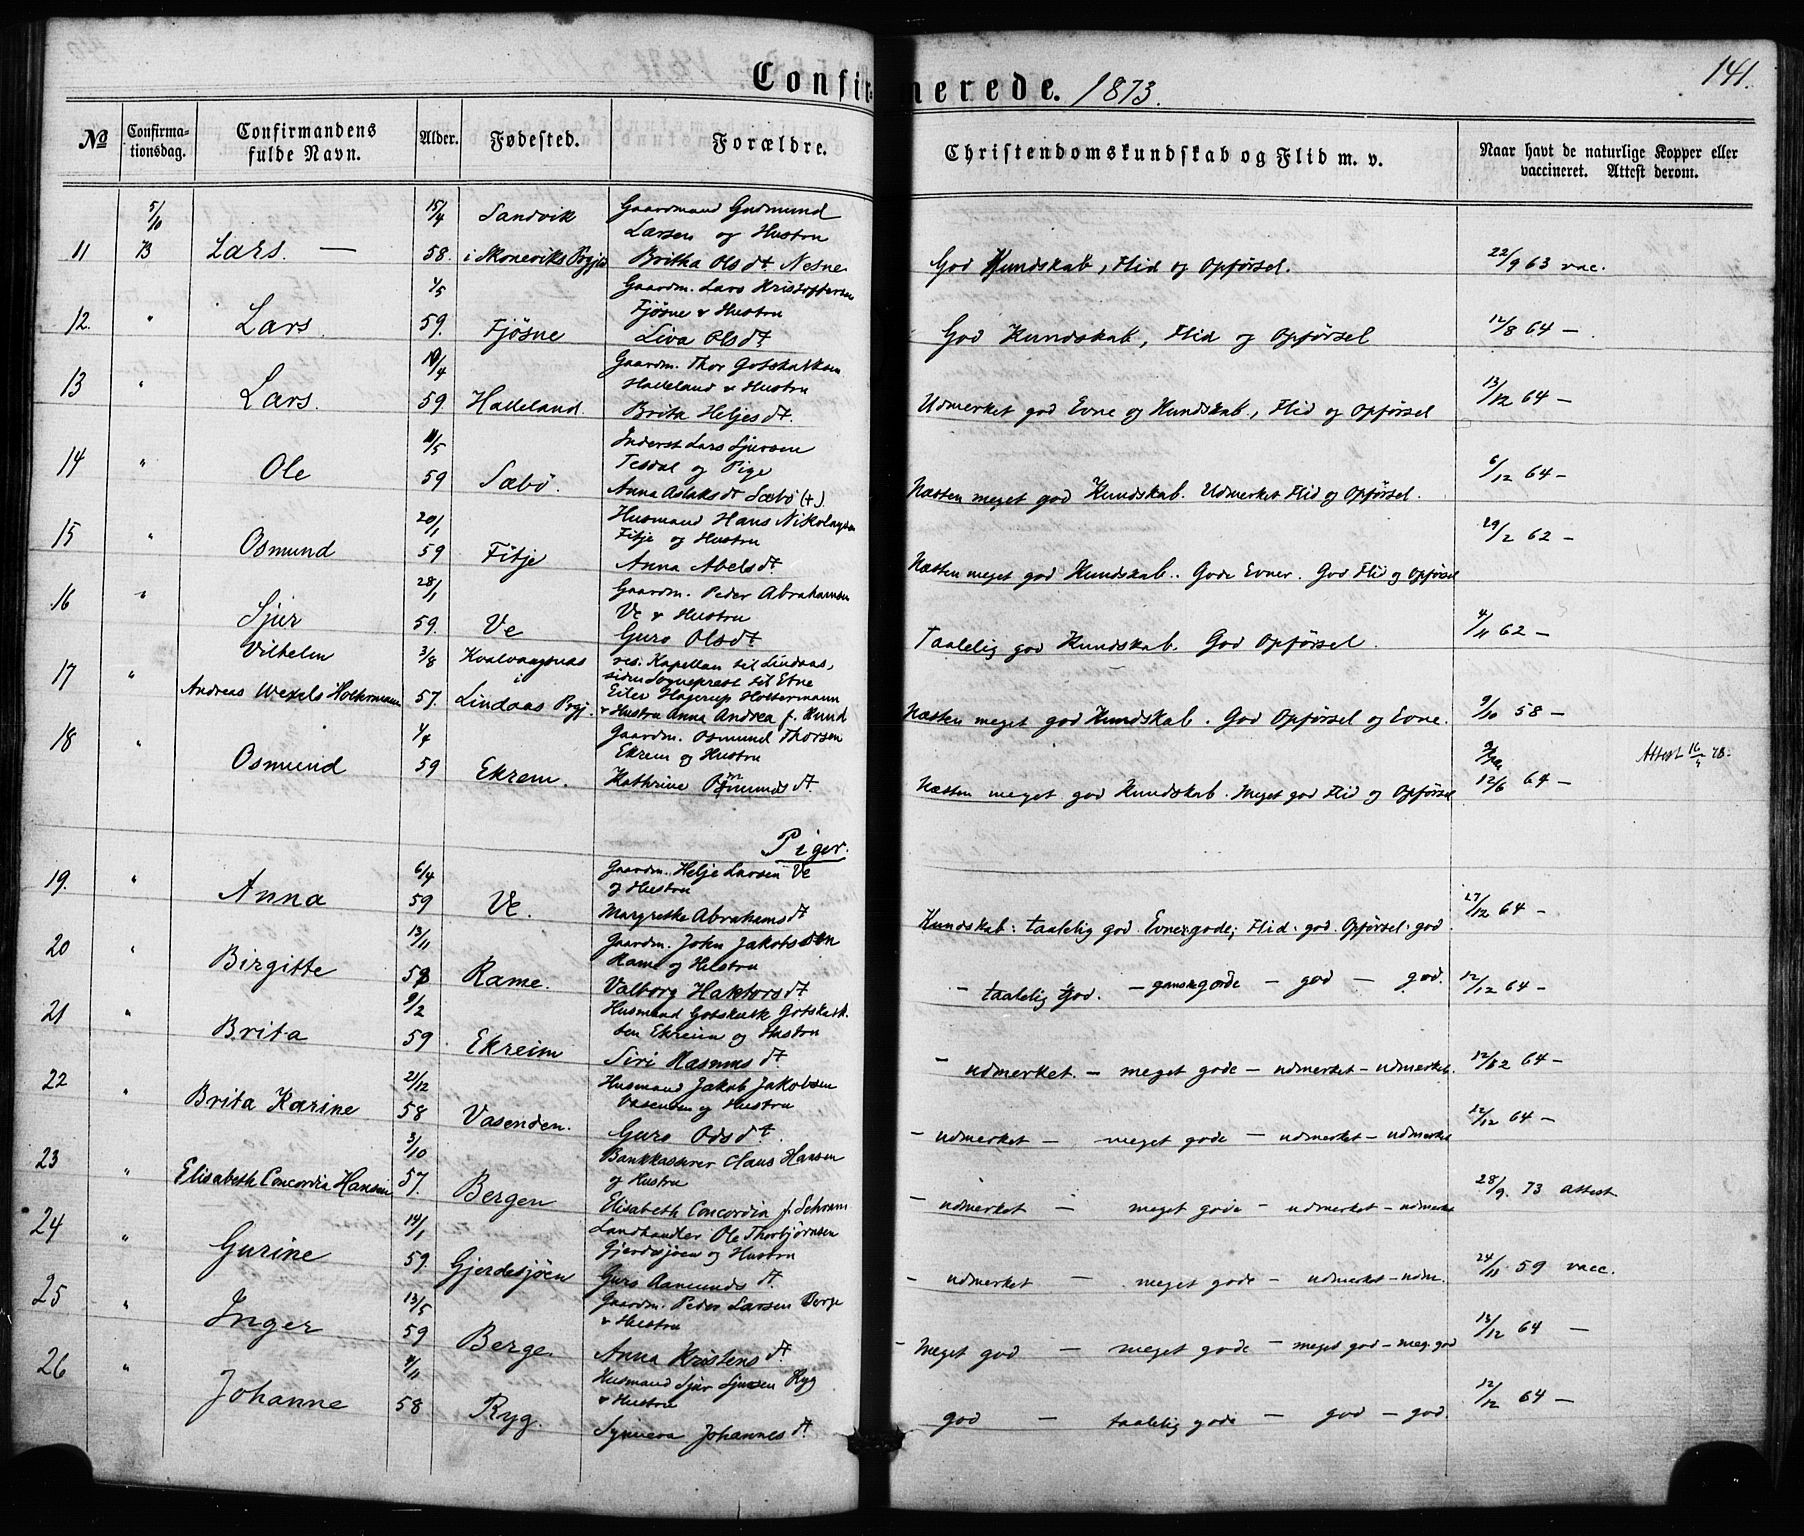 141.
Confirmerede. 1873.
№ Confirmationsdag. Confirmandens fulde Navn. Alder. Fødested. Forældre. Christendomskundskab og Flid m. v. Naar havt de naturlige Kopper eller vaccineret. Attest derom.
5/10 15/4 Sandvik Gaardmand Gudmund
Larsen og Hustru
11 73 Lars. — 58. i Skoneviks Prgjld Britha Olsdt. Nesne God Kundskab, Flid og Opførsel. 22/9 63 vac.
4/5 Gaardm. Lars Kristoffersen
Fjøsne & Hustru
12. " Lars. 59. Fjøsne Liva Olsdt. God Kundskab, Flid og Opførsel 12/8 64 —
10/4 Gaardm. Thor Gotskalksen
Halleland & Hustru
13 " Lars. 59 Halleland. Brita Heljesdt. Udmerket god Evne og Kundskab, Flid og Opførsel 13/12 64 —
11/5 Inderst Lars Sjursen
Tesdal og Pige
14 " Ole 59 Sæbø. Anna Aslaksdt Sæbø (+). Næsten meget god Kundskab. Udmerket Flid og Opførsel. 6/12 64 —
20/1 Husmand Hans Nikolaysen
Fitje og Hustru
15 " Osmund 59 Fitje Anna Abelsdt. Næsten meget god Kundskab. Gode Evner. God Flid og Opførsel 29/2 62 —
28/1 Gaardm. Peder Abrahamsen
Ve & Hustru
16 " Sjur 59. Ve Guro Olsdt. Taalelig god Kundskab. God Opførsel. 4/11 62 —
Vilhelm 3/8 Kvalvaagnæs res. Kapellan til Lindaas,
i siden Sogneprest til Etne
17 " Andreas Wexels Holtermann 57. Lindaas Prgj. Eiler Hagerup Holtermann
& Hustru Anna Andrea f. Kund Næsten meget god Kundskab. God Opførsel og Evne. 9/10 58 —
4/4 Gaardm. Osmund Thorsen
Ekrem og Hustru
18 " Osmund 59 Ekrem. Kathrine Osmundsdt Næsten meget god Kundskab. Meget god Flid og Opførsel 12/6 64 — Attest 16/4
Piger.
6/4 Gaardm. Helje Larsen Ve
og Hustru
19. " Anna 59 Ve. Margrethe Abrahamsdt Kundskab: taalelig god. Evner: gode; Flid: god. Opførsel: god 27/12 64 —
13/11 Gaardm. John Jakobssen
Rame og Hustru
20 " Birgitte 58 Rame. Valborg Haktorsdt — taalelig god. — ganske gode — god — god. 12/12 64 —
9/2 Husmand Gotskalk Gotskalk-
sen Ekreim og Hustru
21 " Brita 59 Ekreim Siri Rasmusdt. — udmerket. — meget gode — udmerket — udmerket. 12/12 64 —
21/12 Husmand Jakob Jakobsen
Vasenden og Hustru
22 " Brita Karine 58 Vasenden. Guro Odsdt. — udmerket — meget gode — udmerket — udmerket 12/12 64 —
3/10 Bankkasserer Claus Hansen
og Hustru
23 " Elisabeth Concordia Hansen 57. Bergen Elisabeth Concordia f. Schram — udmerket — meget gode — udmerket — udmerket 28/9. 73 attest
14/1 Landhandler Ole Thorbjørnsen
Gjerdesjøen og Hustru
24 " Gurine 59. Gjerdesjøen Guro Aamundsdt. — udmerket — meget gode — udmerket — udm. 24/11 59 vacc.
13/5 Gaardm. Peder Larsen Berge
& Hustru
25 " Inger 59 Berge. Anna Kristensdt. — Meget god — meget gode — meget god — meg. god 13/12 64 —
4/11 Husmand Sjur Sjursen Ryg
& Hustru
26 " Johanne 58 Ryg. Synneva Johannesdt god — taalelig gode — god — god. 12/12 64 —